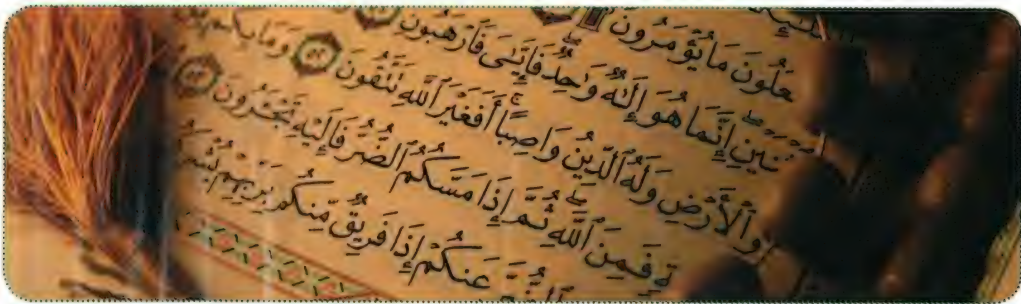 علون ما يؤمرون
نين إنما هو إله وٰحد فإيـٰى فارهبون ٥١
والأرض وله الدين واصبا أفغير الله تتقون ٥٢ وما بكم
فمن الله ثم إذا مسكم الضر فإليه تجـٔرون ٥٣
عنكم إذا فريق منكم بربهم